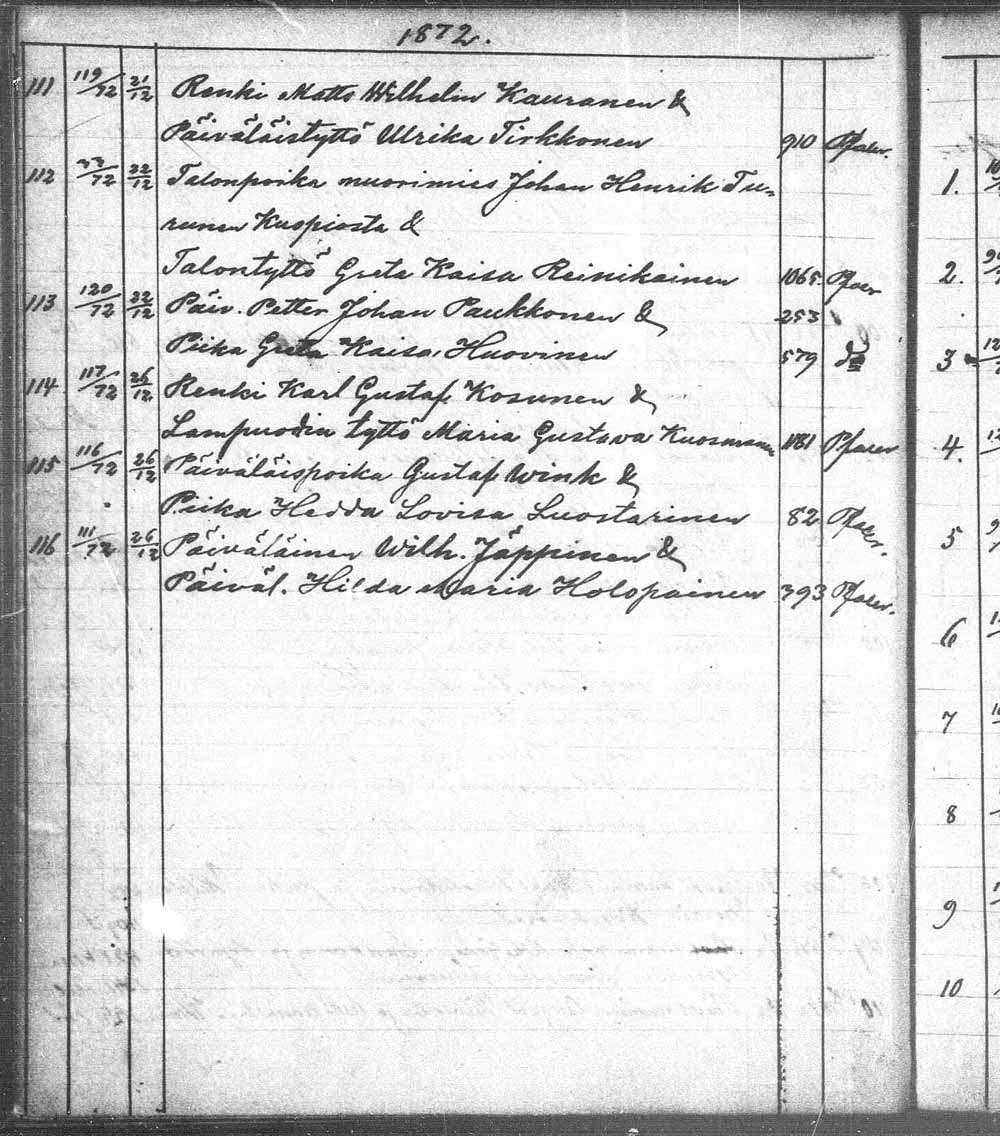 1872.
111 119/72 21/12 Renki Matts Wilhelm Kauranen &
Päiväläistyttö Ulrika Tirkkonen 910 Pfaler.
112 /72 22/12 Talonpoika nuorimies Johan Henrik Tu-
runen Kuopiosta &
Talontyttö Greta Kaisa Reinikainen 1065. Pfaler
113 120/72 22/12 Päiv. Petter Johan Paukkonen & 253
Piika Greta Kaisa Huovinen 579 do
114 117/72 26/12 Renki Karl Gustaf Kosunen &
Lampuodin tyttö Maria Gustava Kuosmanen 1181 Pfaler
115 116/72 26/12 Päiväläispoika Gustaf Wink &
Piika Hedda Lovisa Luostarinen 82 Pfaler.
116 111/72 26/12 Päiväläinen Wilh. Jäppinen &
Päiväl. Hilda Maria Holopainen 393 Pfaler.
1.
2.
3
4.
5
6
7
8
9
10